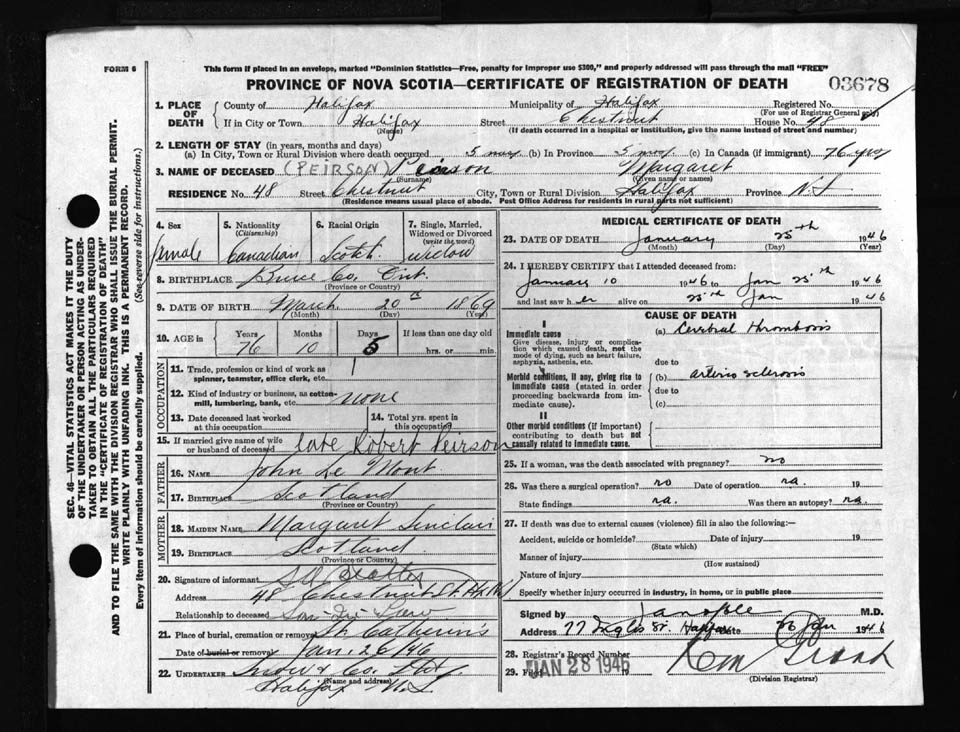 FORM 6
This form if placed in an envelope, marked "Dominion Statistics—Free, penalty for improper use $300," and properly addressed will pass through the mail "FREE"
PROVINCE OF NOVA SCOTIA—CERTIFICATE OF REGISTRATION OF DEATH 03678
1. PLACE OF DEATH
County of Halifax Municipality of Halifax Registered No.
(For use of Registrar General only)
If in City or Town Halifax Street Chestnut House No. 48
(Name) (If death occurred in a hospital or institution, give the name instead of street and number)
2. LENGTH OF STAY (in years, months and days)
(a) In City, Town or Rural Division where death occurred 5 mos (b) In Province 5 mos (c) In Canada (if immigrant) 76 yrs
3. NAME OF DECEASED (PEIRSON) Peirson Margaret
(Surname) (Given name or names)
RESIDENCE No. 48 Street Chestnut City, Town or Rural Division Halifax Province N.S
(Residence means usual place of abode. Post Office Address for residents in rural parts not sufficient)
4. Sex 5. Nationality (Citizenship) 6. Racial Origin 7. Single, Married, Widowed or Divorced (write the word)
female Canadian Scotch Widow
8. BIRTHPLACE Bruce Co. Ont.
(Province or Country)
9. DATE OF BIRTH March 20th 1869
(Month) (Day) (Year)
10. AGE in Years Months Days If less than one day old
76 10 5 hrs. or min.
OCCUPATION
11. Trade, profession or kind of work as spinner, teamster, office clerk, etc.
12. Kind of industry or business, as cotton-mill, lumbering, bank, etc. none
13. Date deceased last worked at this occupation
14. Total yrs. spent in this occupation
15. If married give name of wife or husband of deceased Late Robert Peirson
FATHER
16. NAME John De Mont
17. BIRTHPLACE Scotland
(Province or Country)
MOTHER
18. MAIDEN NAME Margaret Sinclair
19. BIRTHPLACE Scotland
(Province or Country)
20. Signature of informant
Address 48 Chestnut St.
Relationship to deceased Son In Law
21. Place of burial, cremation or removal St. Catherin's
Date of burial or removal Jan. 26/46
22. UNDERTAKER Snow & Co.
(Name and address)
Halifax N.S.
MEDICAL CERTIFICATE OF DEATH
23. DATE OF DEATH January 25th 1946
(Month) (Day) (Year)
24. I HEREBY CERTIFY that I attended deceased from:
January 10 1946 to Jan 25th 1946
and last saw her alive on 25th Jan 1946
CAUSE OF DEATH
I
Immediate cause
Give disease, injury or complication which caused death, not the mode of dying, such as heart failure, asphyxia, asthenia, etc.
(a) Cerebral thrombosis
due to
Morbid conditions, if any, giving rise to immediate cause (stated in order proceeding backwards from immediate cause).
(b) arterio sclerosis
due to
(c)
II
Other morbid conditions (if important) contributing to death but not causally related to immediate cause.
25. If a woman, was the death associated with pregnancy? no
26. Was there a surgical operation? no Date of operation na. 19
State findings na. Was there an autopsy? na.
27. If death was due to external causes (violence) fill in also the following:—
Accident, suicide or homicide? Date of injury 19
(State which)
Manner of injury
(How sustained)
Nature of injury
Specify whether injury occurred in industry, in home, or in public place
Signed by M.D.
Address 77 Inglis St. Halifax Date 26 Jan 1946
28. Registrar's Record Number
29. Filed JAN 28 1946 19
(Division Registrar)
SEC. 46—VITAL STATISTICS ACT MAKES IT THE DUTY OF THE UNDERTAKER OR PERSON ACTING AS UNDERTAKER TO OBTAIN ALL THE PARTICULARS REQUIRED IN THE "CERTIFICATE OF REGISTRATION OF DEATH" AND TO FILE THE SAME WITH THE DIVISION REGISTRAR WHO SHALL ISSUE THE BURIAL PERMIT.
WRITE PLAINLY WITH UNFADING INK. THIS IS A PERMANENT RECORD.
Every item of information should be carefully supplied. (See reverse side for instructions.)